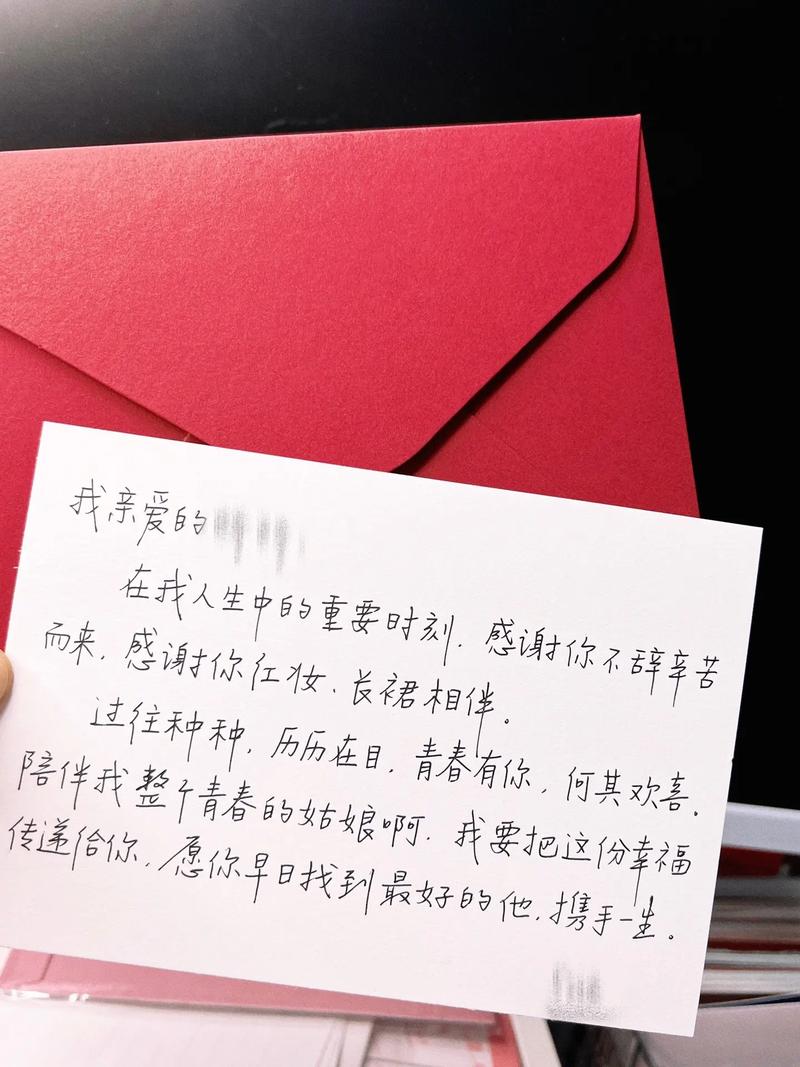 我亲爱的
在我人生中的重要时刻，感谢你不辞辛苦
而来，感谢你红妆、长裙相伴。
过往种种，历历在目，青春有你，何其欢喜。
陪伴我整个青春的姑娘啊，我要把这份幸福
传递给你，愿你早日找到最好的他，携手一生。